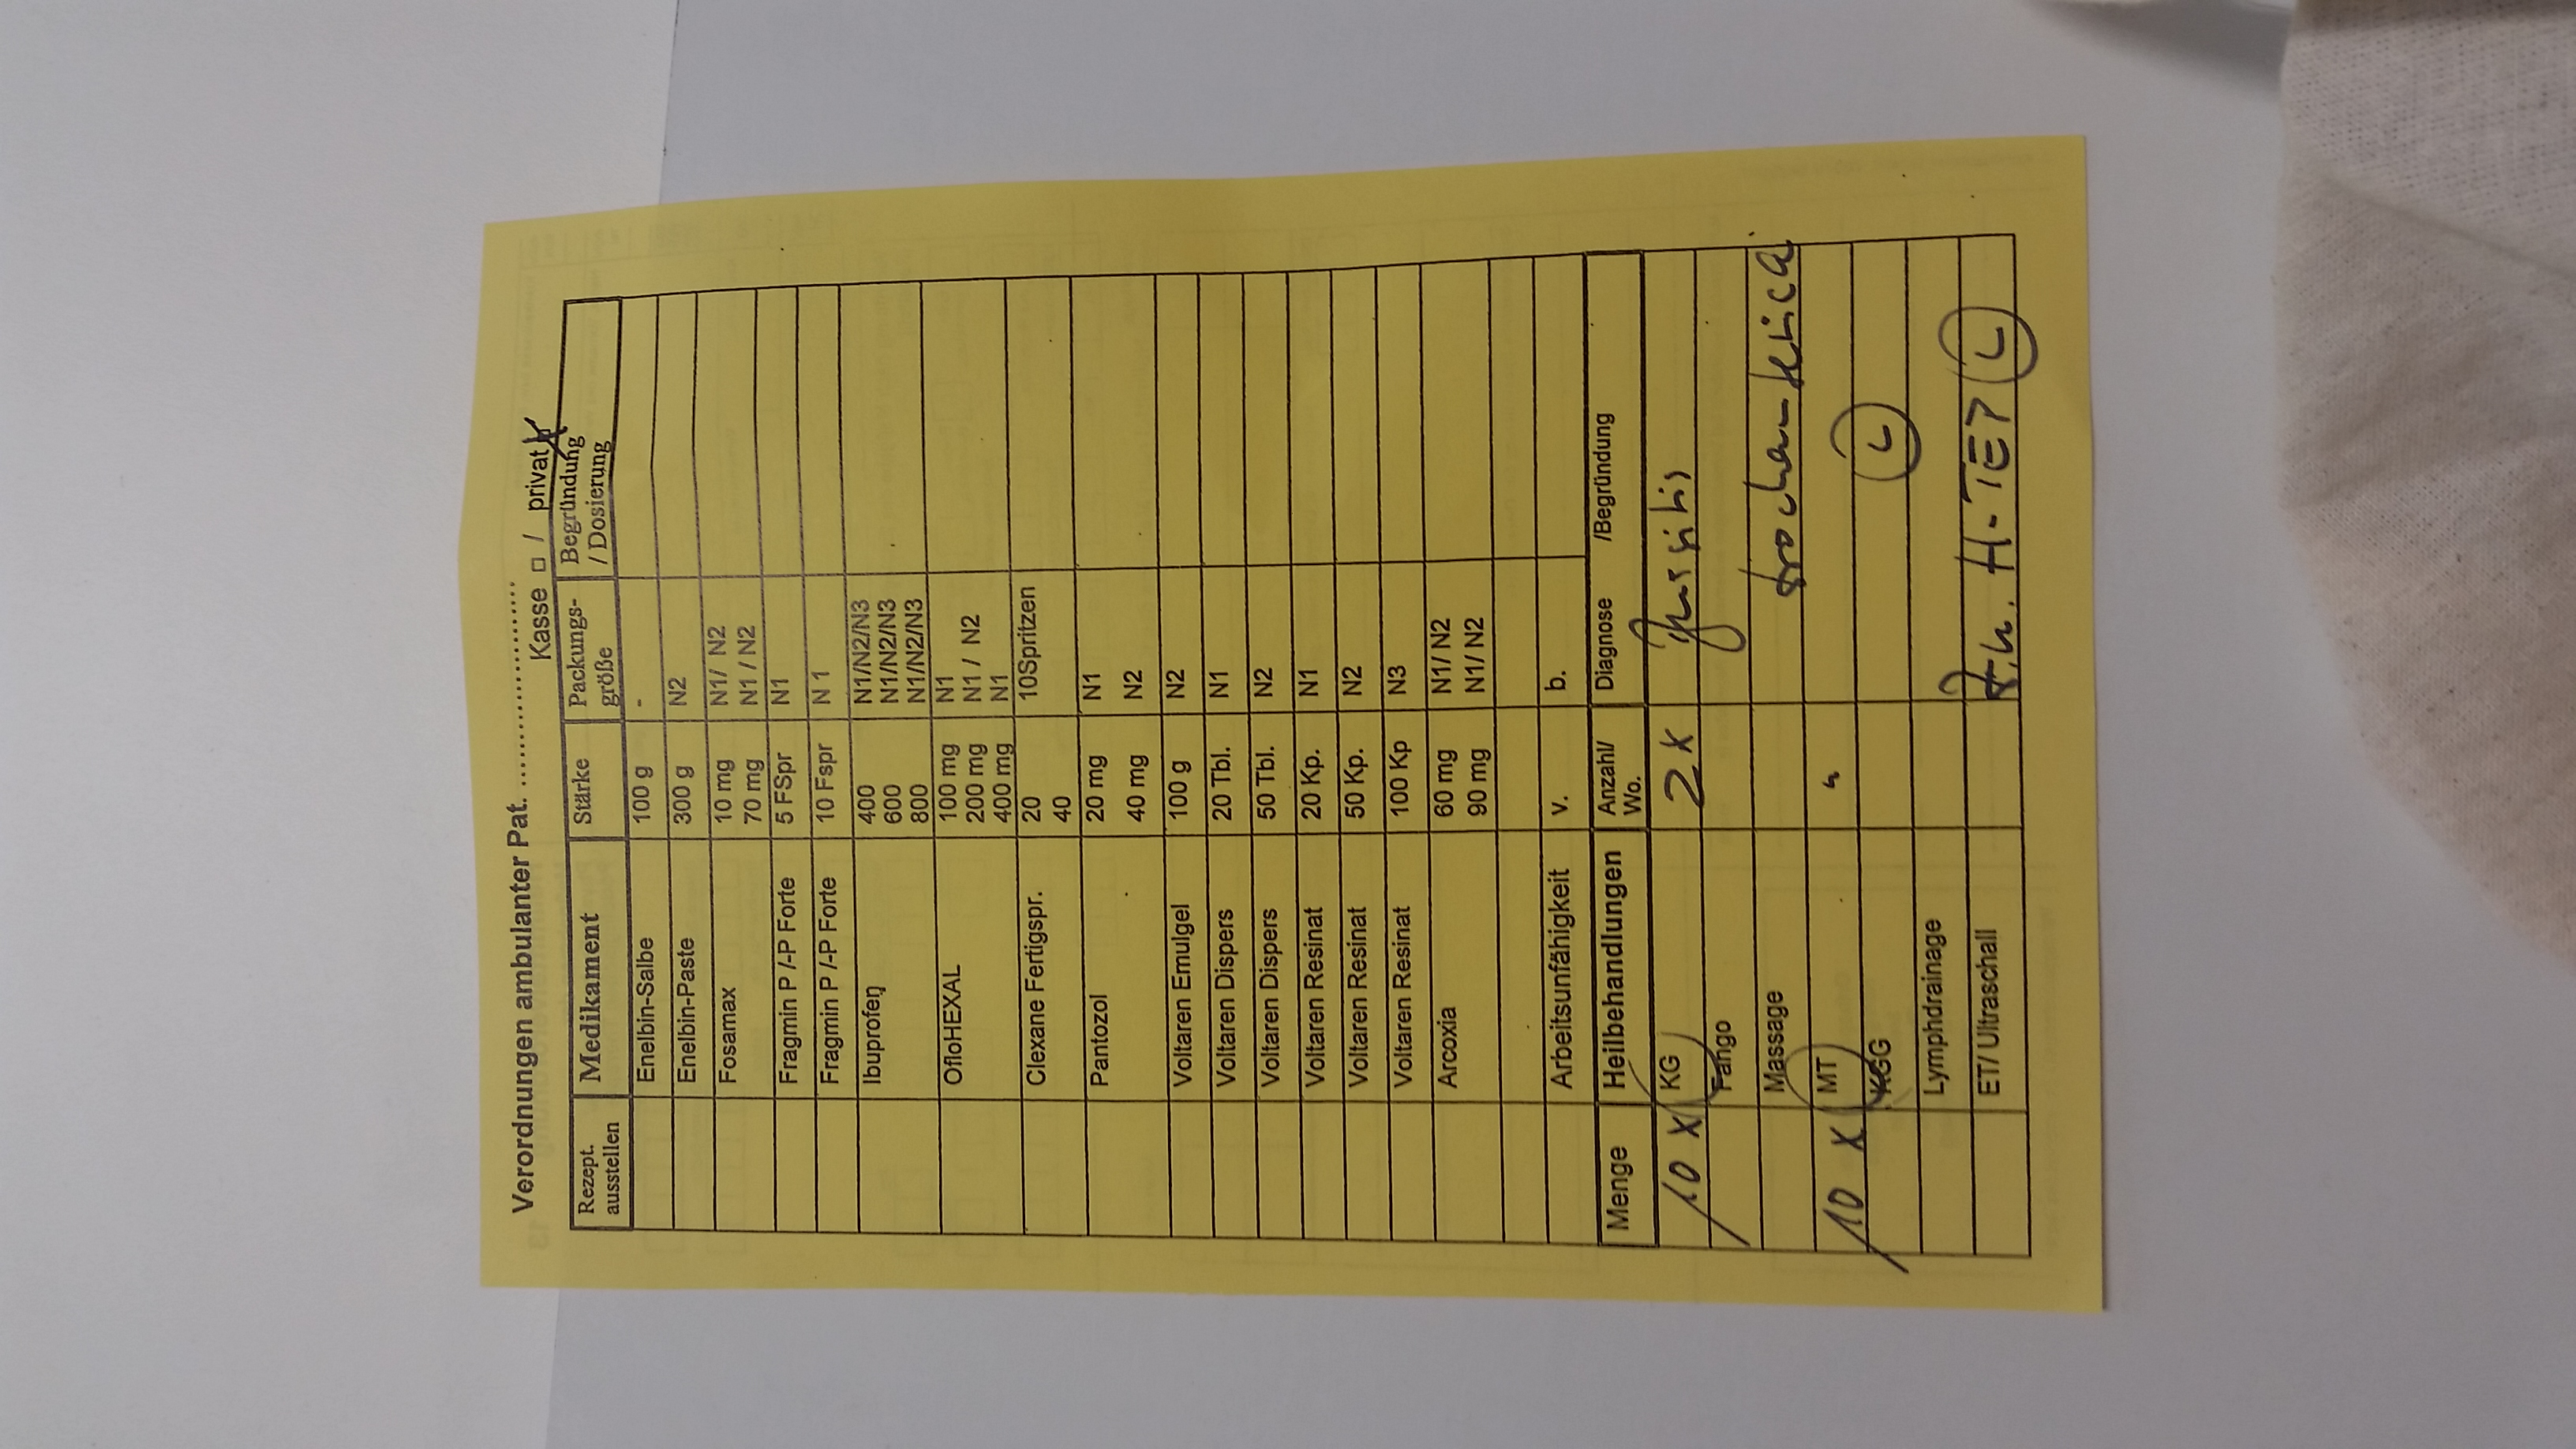 Verordnungen ambulanter Pat. ........................
Kasse □ / privat
Rezept. ausstellen Medikament Stärke Packungs-größe Begründung / Dosierung
Enelbin-Salbe 100 g -
Enelbin-Paste 300 g N2
Fosamax 10 mg N1/ N2
70 mg N1 / N2
Fragmin P /-P Forte 5 FSpr N1
Fragmin P /-P Forte 10 Fspr N 1
Ibuprofen 400 N1/N2/N3
600 N1/N2/N3
800 N1/N2/N3
OfloHEXAL 100 mg N1
200 mg N1 / N2
400 mg N1
Clexane Fertigspr. 20 10Spritzen
40
Pantozol 20 mg N1
40 mg N2
Voltaren Emulgel 100 g N2
Voltaren Dispers 20 Tbl. N1
Voltaren Dispers 50 Tbl. N2
Voltaren Resinat 20 Kp. N1
Voltaren Resinat 50 Kp. N2
Voltaren Resinat 100 Kp N3
Arcoxia 60 mg N1/ N2
90 mg N1/ N2
Arbeitsunfähigkeit v. b.
Menge Heilbehandlungen Anzahl/ Wo. Diagnose /Begründung
10 x KG 2 x
Fango
Massage trochanterica
10 x MT "
KGG L
Lymphdrainage
ET/ Ultraschall H-TEP L